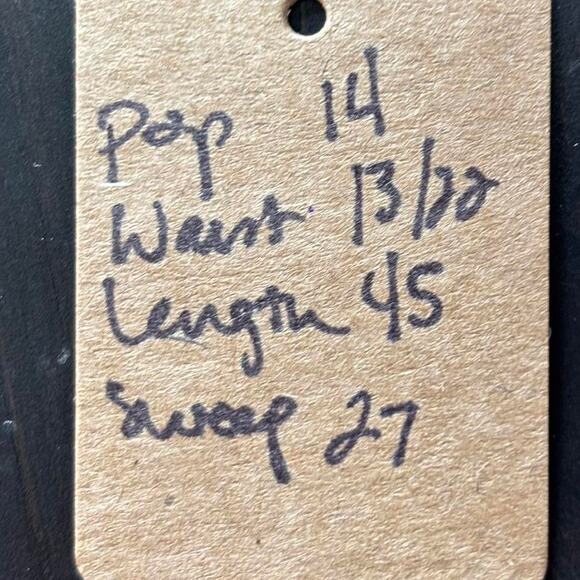 Pap 14
Waist 13/22
Length 45
Sweep 27